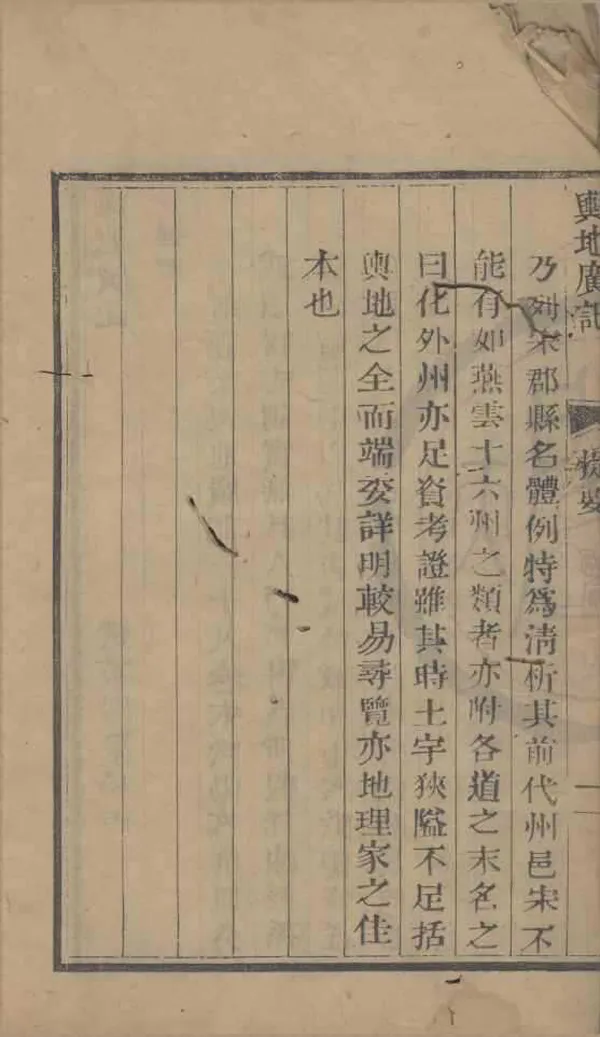 輿地廣記
提要
乃列宋郡縣名體例特爲淸析其前代州邑宋不
能有如燕雲十六州之類者亦附各道之末名之
曰化外州亦足資考證雖其時土宇狹隘不足括
輿地之全而端委詳明較易尋覽亦地理家之佳
本也